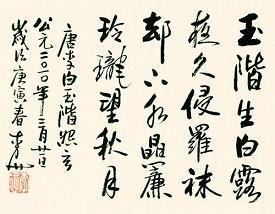 玉階生白露
夜久侵羅袜
却下水晶簾
玲瓏望秋月
唐李白玉階怨
公元二〇一〇年
歲次庚寅春